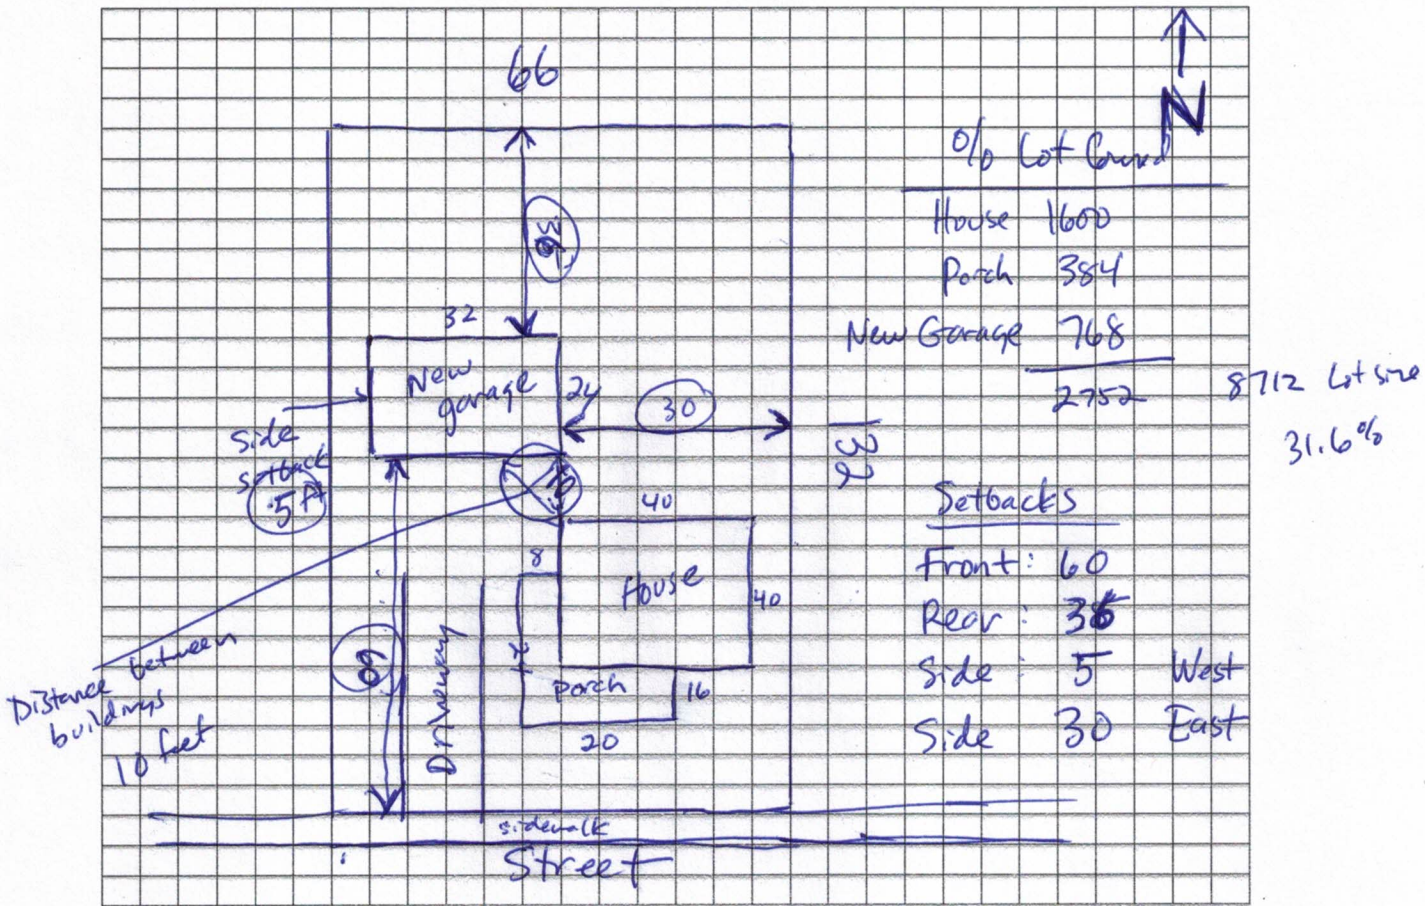 N
66
% Lot Covered
House 1600
Porch 384
New Garage 768
2752
8712 Lot size
31.6%
36'
32
New
garage
24
30
132
side
setback
5 ft
10
40
8
House
40
24
Porch
16
20
60
Driveway
Distance between
buildings
10 feet
Setbacks
Front: 60
Rear: 36
Side: 5 West
Side 30 East
sidewalk
Street